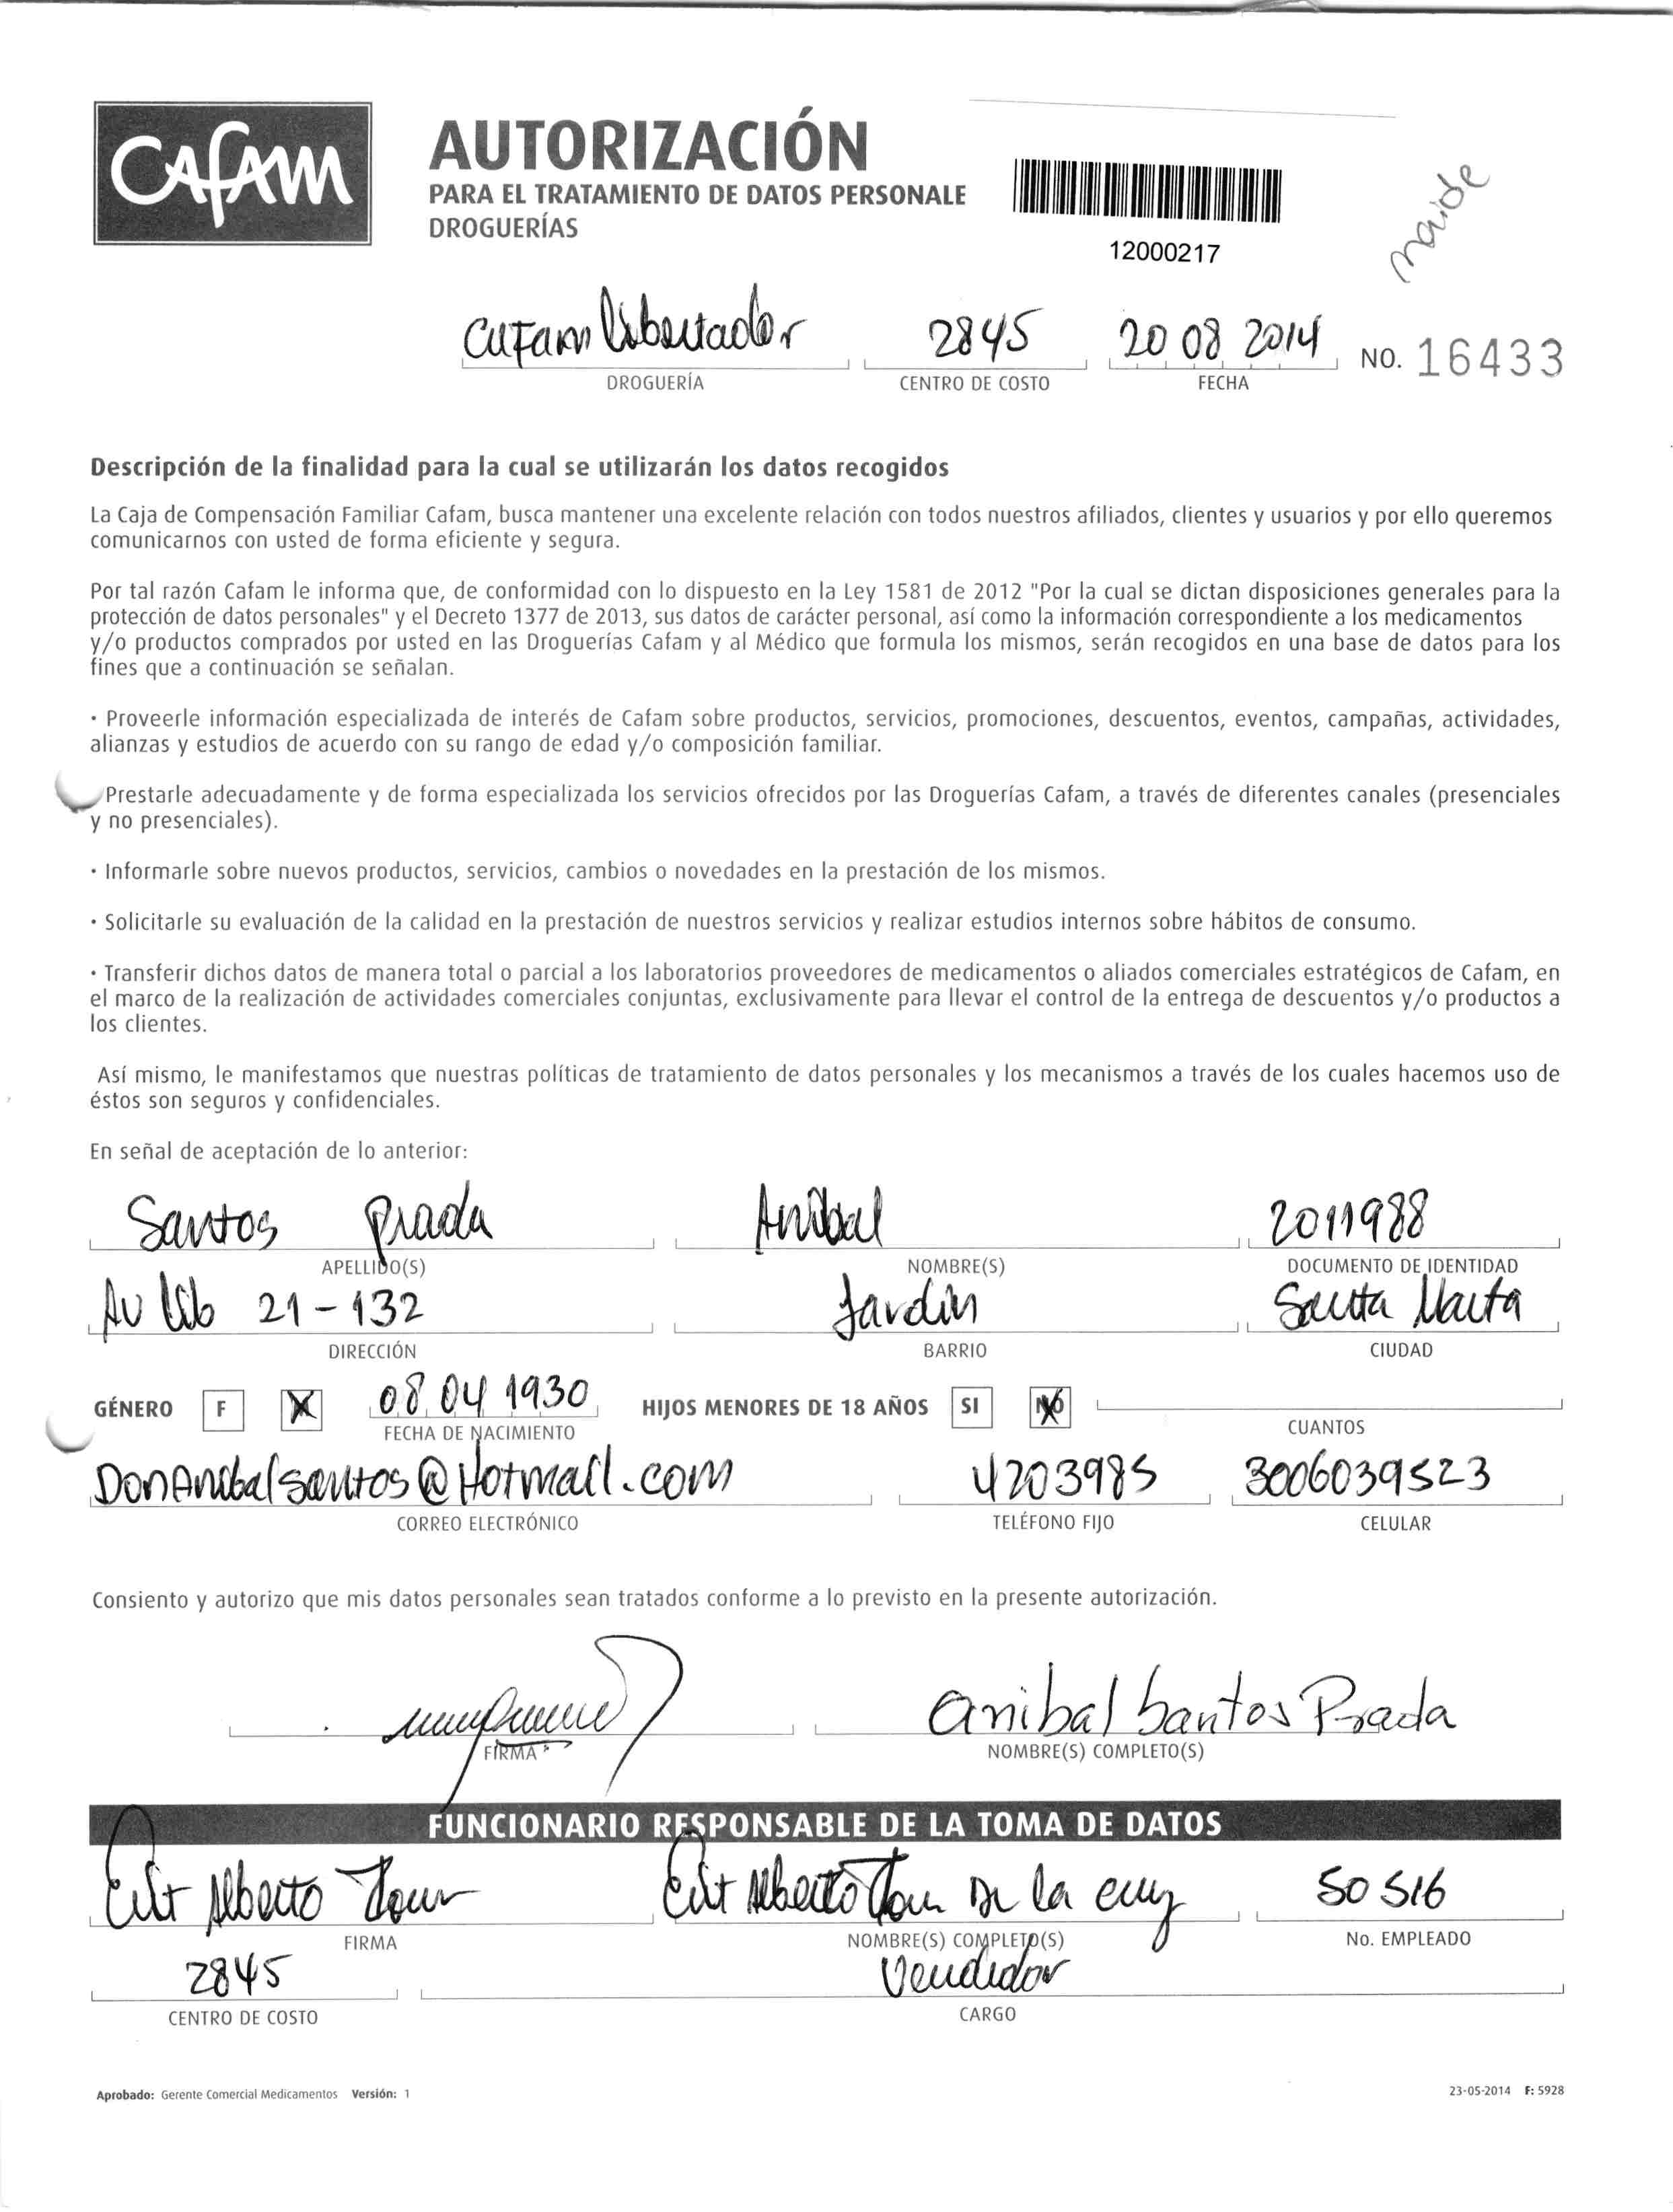 CAFAM
AUTORIZACIÓN
PARA EL TRATAMIENTO DE DATOS PERSONALE
DROGUERÍAS
12000217
Cafam Libertador 2845 20 08 2014 NO. 16433
DROGUERÍA CENTRO DE COSTO FECHA
Descripción de la finalidad para la cual se utilizarán los datos recogidos
La Caja de Compensación Familiar Cafam, busca mantener una excelente relación con todos nuestros afiliados, clientes y usuarios y por ello queremos
comunicarnos con usted de forma eficiente y segura.
Por tal razón Cafam le informa que, de conformidad con lo dispuesto en la Ley 1581 de 2012 "Por la cual se dictan disposiciones generales para la
protección de datos personales" y el Decreto 1377 de 2013, sus datos de carácter personal, así como la información correspondiente a los medicamentos
y/o productos comprados por usted en las Droguerías Cafam y al Médico que formula los mismos, serán recogidos en una base de datos para los
fines que a continuación se señalan.
· Proveerle información especializada de interés de Cafam sobre productos, servicios, promociones, descuentos, eventos, campañas, actividades,
alianzas y estudios de acuerdo con su rango de edad y/o composición familiar.
Prestarle adecuadamente y de forma especializada los servicios ofrecidos por las Droguerías Cafam, a través de diferentes canales (presenciales
y no presenciales).
· Informarle sobre nuevos productos, servicios, cambios o novedades en la prestación de los mismos.
· Solicitarle su evaluación de la calidad en la prestación de nuestros servicios y realizar estudios internos sobre hábitos de consumo.
· Transferir dichos datos de manera total o parcial a los laboratorios proveedores de medicamentos o aliados comerciales estratégicos de Cafam, en
el marco de la realización de actividades comerciales conjuntas, exclusivamente para llevar el control de la entrega de descuentos y/o productos a
los clientes.
Así mismo, le manifestamos que nuestras políticas de tratamiento de datos personales y los mecanismos a través de los cuales hacemos uso de
éstos son seguros y confidenciales.
En señal de aceptación de lo anterior:
Santos Prada Anibal 2011988
APELLIDO(S) NOMBRE(S) DOCUMENTO DE IDENTIDAD
Av Lib 21-132 Jardin Santa Marta
DIRECCIÓN BARRIO CIUDAD
GÉNERO F X 08 04 1930 HIJOS MENORES DE 18 AÑOS SI NO
FECHA DE NACIMIENTO CUANTOS
DonAnibalsantos@Hotmail.com 4203985 3006039523
CORREO ELECTRÓNICO TELÉFONO FIJO CELULAR
Consiento y autorizo que mis datos personales sean tratados conforme a lo previsto en la presente autorización.
anibal Santos Prada
FIRMA NOMBRE(S) COMPLETO(S)
FUNCIONARIO RESPONSABLE DE LA TOMA DE DATOS
Alberto Alberto De la 50516
FIRMA NOMBRE(S) COMPLETO(S) No. EMPLEADO
2845 Vendedor
CENTRO DE COSTO CARGO
Aprobado: Gerente Comercial Medicamentos Versión: 1 23-05-2014 F: 5928